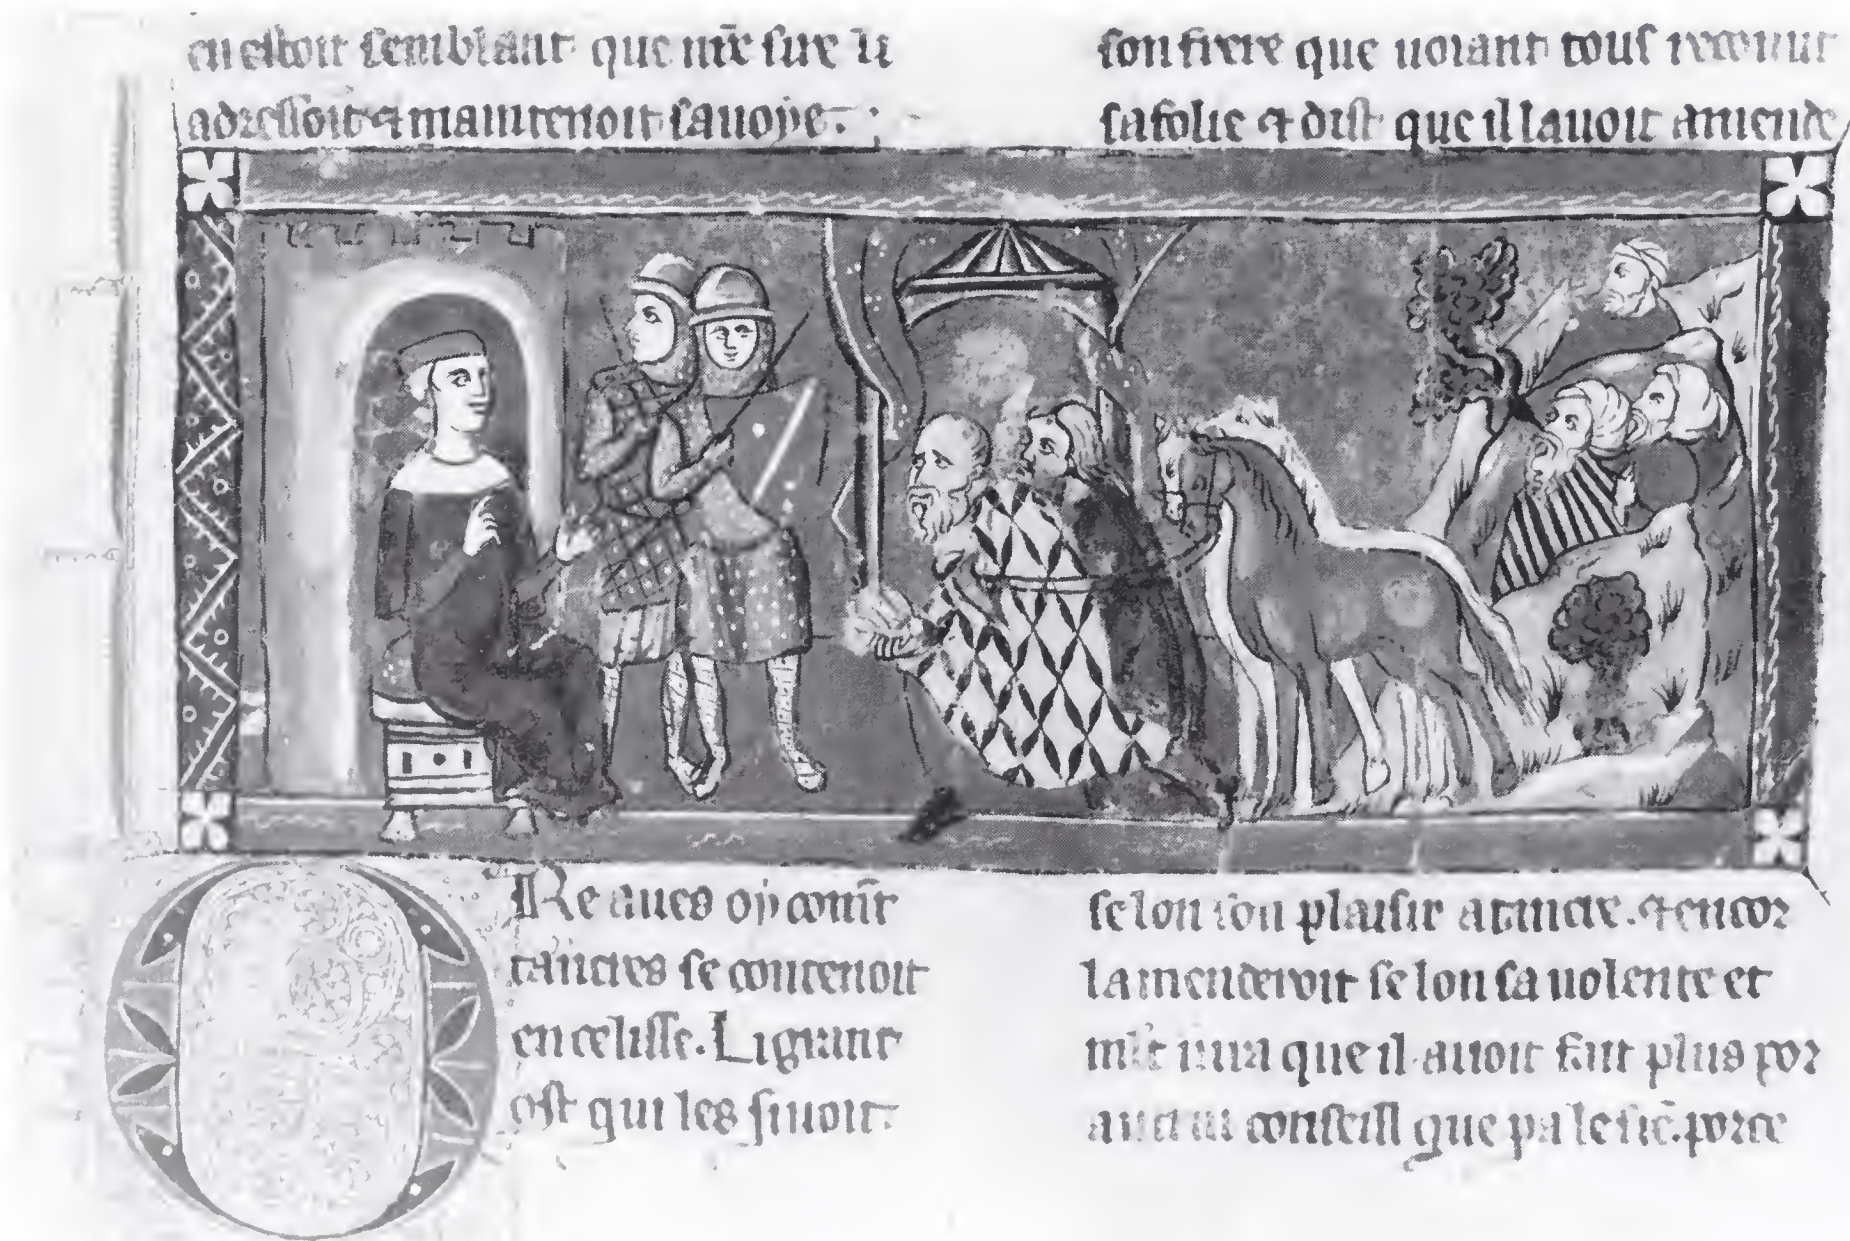 en estoit semblant que nr̄e sire li
adressoit ⁊ maintenoit sa uoye.
ORe aues oy com̄t
tancres se contenoit
en celisse. Li grant
ost qui les siuoit.
son frere que uoiant tous reconut
sa folie ⁊ dist que il lauoit amende
selon son plaisir a tancre. ⁊ encor
lamenderoit selon sa uolente et
iura que il auoit fait plus por
conseill que pa le sie. porce